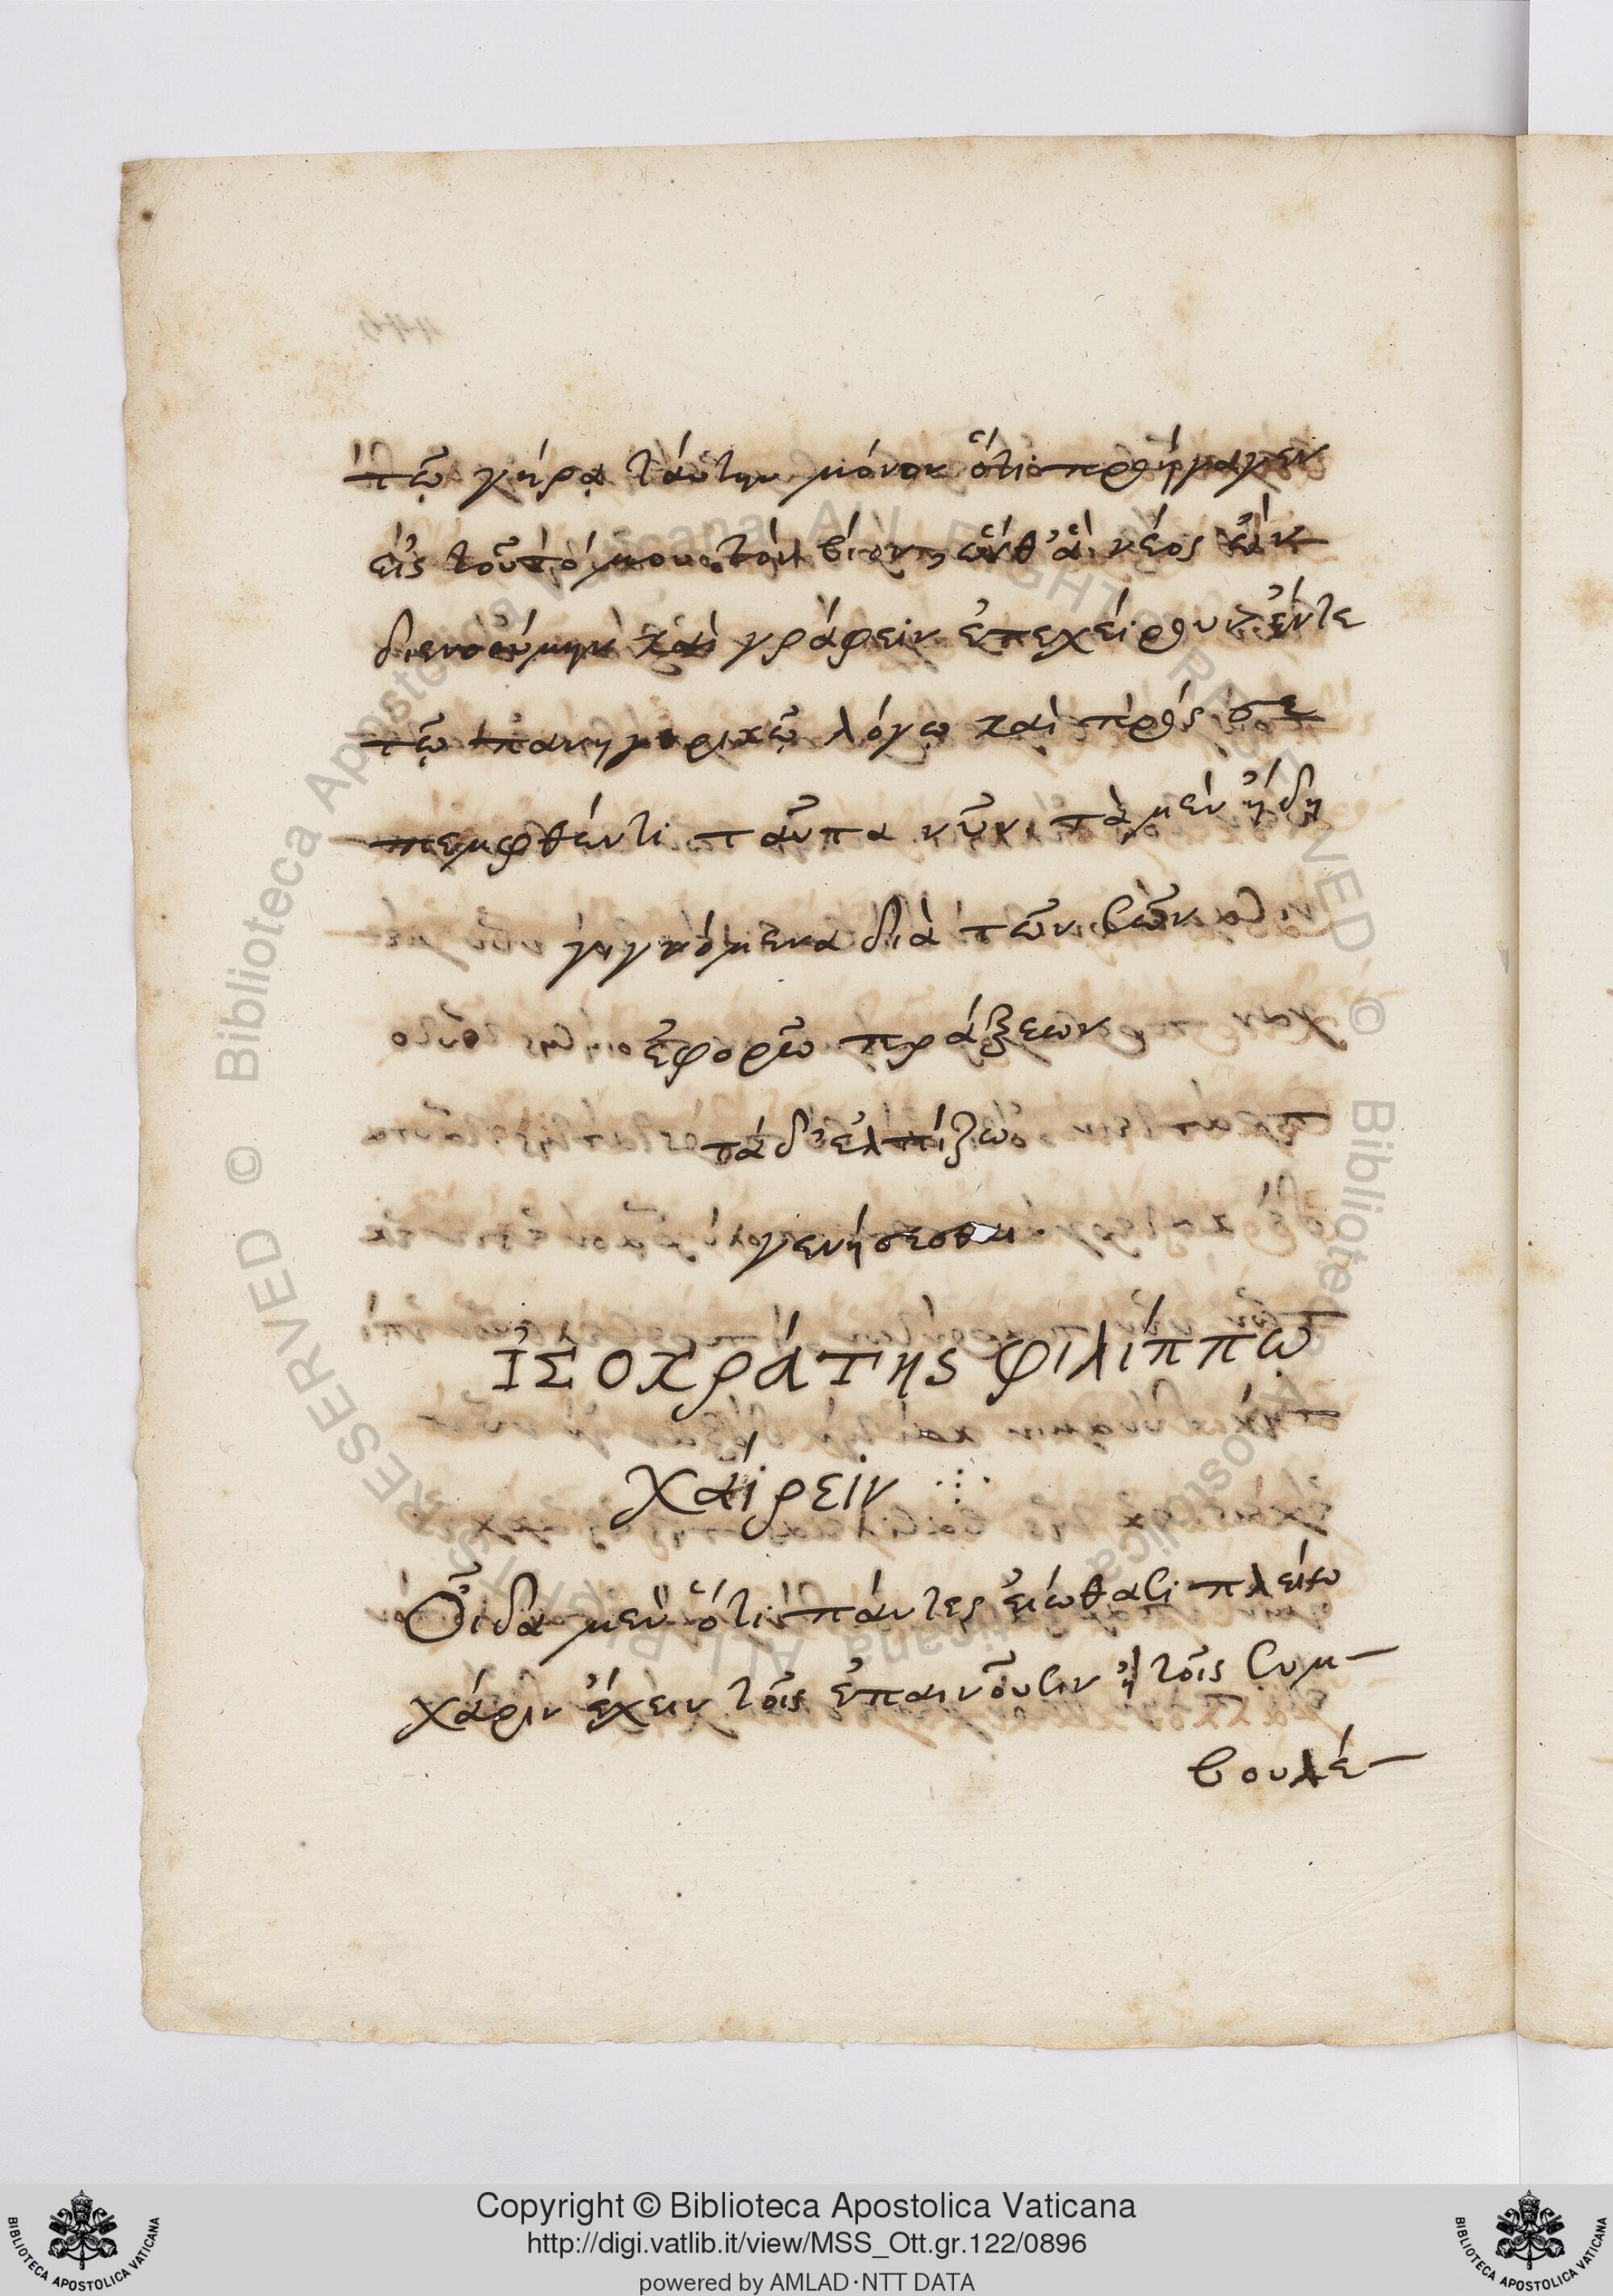 τῷ γήρᾳ ταύτην μόνον ὅτι προήγαγεν
εἰς τοῦτό μου τὸν βίον, ὥσθ' ἃ νέος ὢν
διενοούμην καὶ γράφειν ἐπεχείρουν ἔν τε
τῷ πανηγυρικῷ λόγῳ καὶ πρός σε
πεμφθέντι ταῦτα νῦν τὰ μὲν ἤδη
γιγνόμενα διὰ τῶν σῶν
ἐφορῶ πράξεων
τὰ δ' ἐλπίζω
γενήσεσθαι
ἸΣΟΚράΤης φιλίππῳ
χαίρειν
Οἶδα μὲν ὅτι πάντες εἰώθασι πλείω
χάριν ἔχειν τοῖς ἐπαινοῦσιν ἢ τοῖς συμ-
βουλέ-
© Biblioteca Apostolica Vaticana ALL RIGHTS RESERVED
© Biblioteca Apostolica Vaticana ALL RIGHTS RESERVED
Copyright © Biblioteca Apostolica Vaticana
http://digi.vatlib.it/view/MSS_Ott.gr.122/0896
powered by AMLAD·NTT DATA
BIBLIOTECA APOSTOLICA VATICANA
BIBLIOTECA APOSTOLICA VATICANA